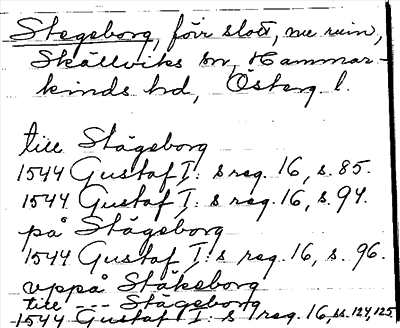 Stegeborg, förr slott, nu ruin,
Skällviks sn, Hammar-
kinds hd, Österg. l.
till Stägeborg
1544 Gustaf I: s reg. 16, s. 85.
1544 Gustaf I: s reg. 16, s. 94.
på Stägeborg
1544 Gustaf I: s reg. 16, s. 96.
uppå Stäkeborg
till --- Stägeborg
1544 Gustaf I: s reg. 16, ss. 124, 125